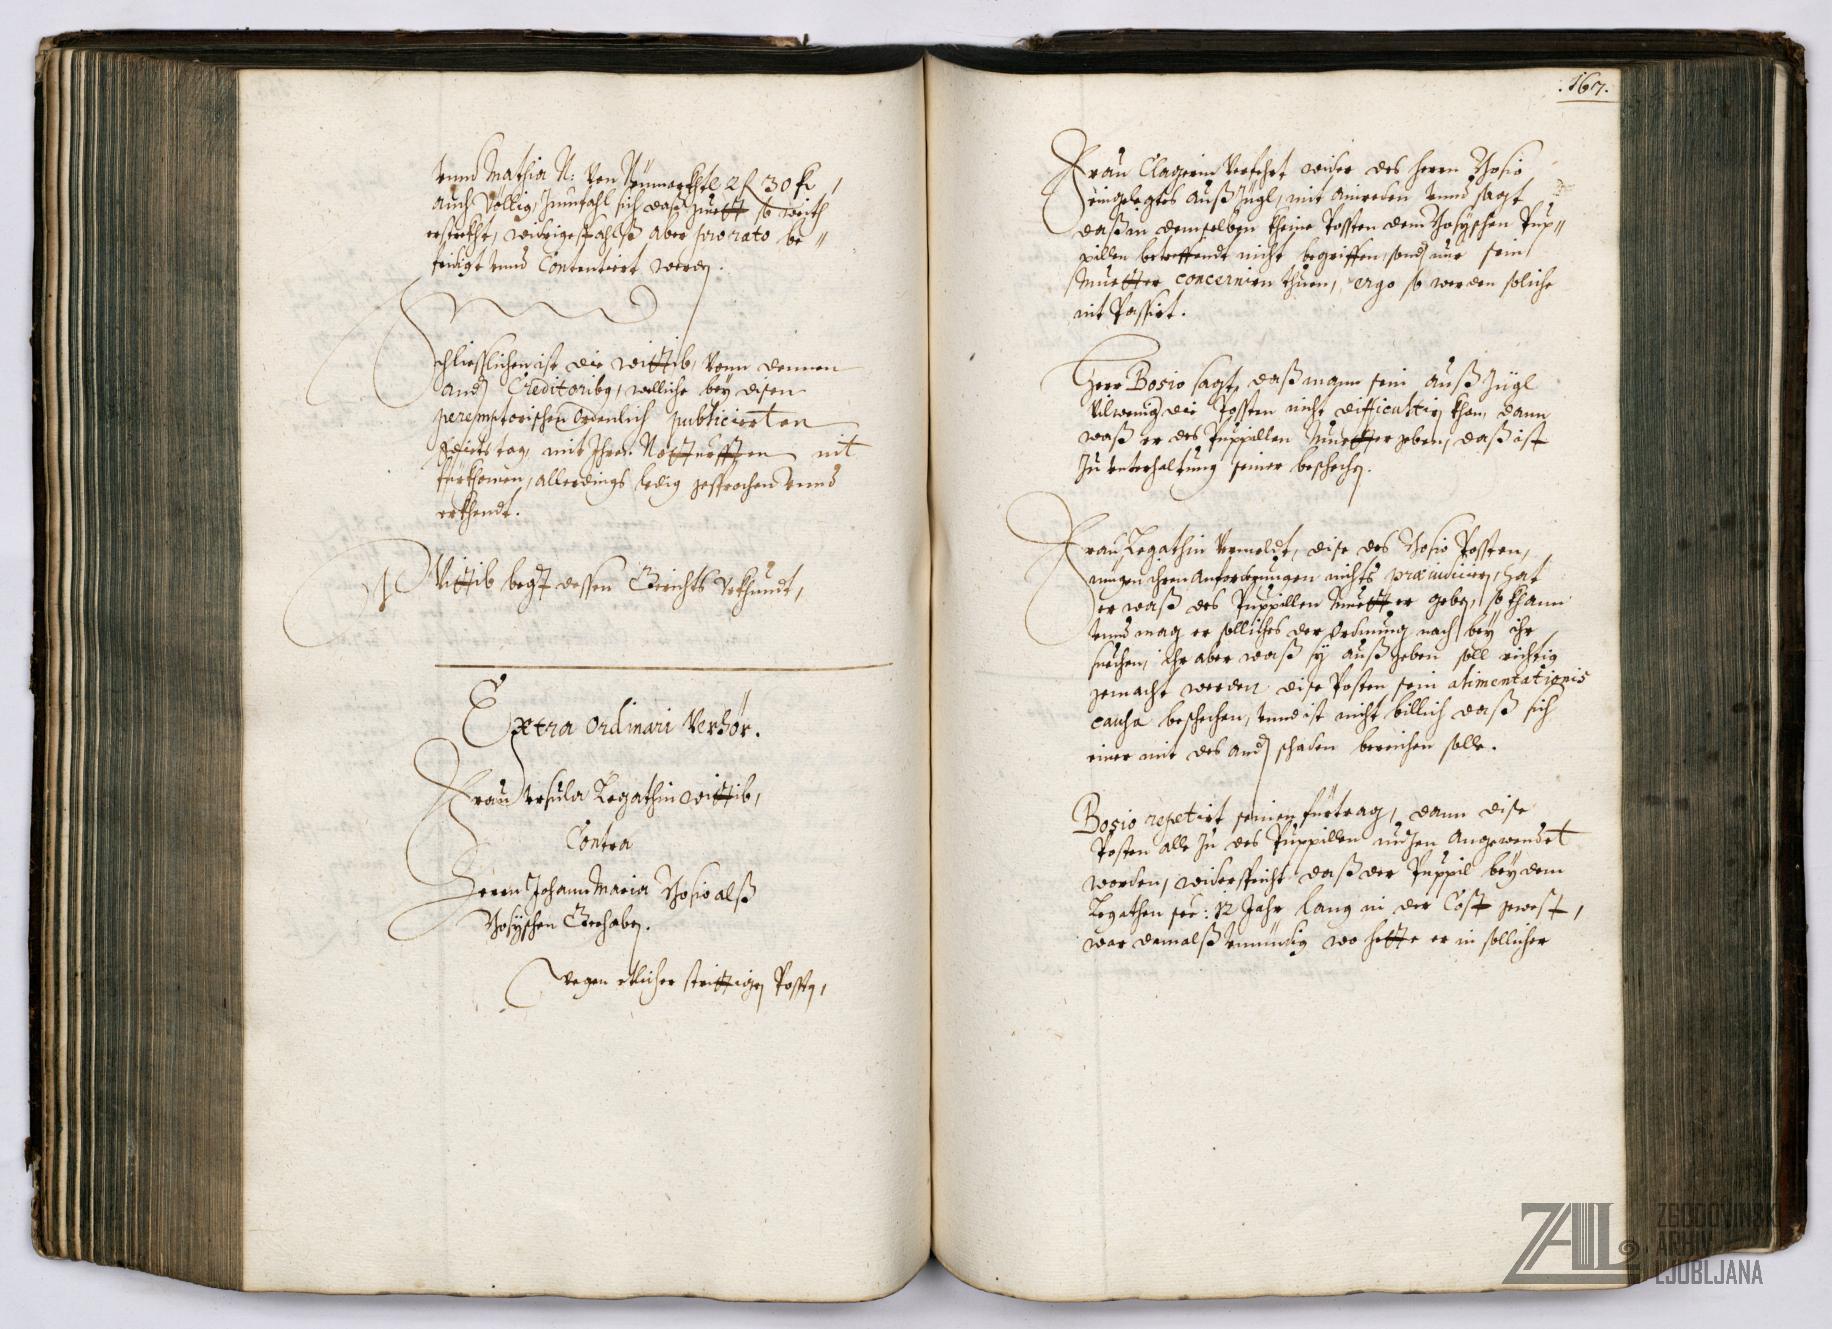 vnnd Mathia N: von Neumarckhtl 2 f 30 kr,
auch völlig, Imfahl sich daß guett so weith
erstrekht, widrigesfahlß aber pro rato be〃
fridigt vnnd Contentiert werden.
Schliesslichen ist die wittib, vonn dennen
andern Creditoribus, welliche bey disen
peremptorischen ordenlich publicierten
Edictstag, mit Ihren Notturfften nit
fürkhomen, allerdings ledig gesprochen vnnd
erkhendt.
Wittib begert dessen Gerichts Vrkhundt,
Extra Ordinari Verhör.
Frau Vrsula Legathin wittib,
Contra
Herrn Johann Maria Bosio alß
Bosyschen Gerhaben.
Wegen etlicher strittigen Posten,
.167.
Frau Clagerin verfehrt wider des Herrn Bosio
eingelegtes Auß Zügl, mit anreden vnnd sagt
daß in demselben kheine Possten dem Bosyschen Pup〃
pillen betreffendt nicht begriffen, sondern nur sein
Muetter concerniren thuen, ergo so werden soliche
nit Passirt.
Herr Bosio sagt, daß mann sein Auß Zügl
vilweniger die Possten nicht difficultirn khan, dann
waß er des Puppillen Muetter geben, daß ist
Zu vnterhaltung seiner beschechen.
Frau Legathin vermeldt, dise des Bosio Possten,
mügen ihren Anforderungen nichts præiudiciren, hat
er waß des Puppillen Muetter geben, so khann
vnnd mag er solliches der Ordnung nach bey ihr
suechen, ihr aber waß sy außgeben soll richtig
gemacht werden dise Posten sein alimentationis
causa beschechen, vnnd ist nicht billich daß sich
einer mit des andern schaden bereichen solle.
Bosio repetirt seinen fürtrag, dann dise
Posten alle Zu des Puppillen nuzen angewendet
worden, widerspricht daß der Puppil bey dem
Legathen see: 12 Jahr lang in der Cosst gewest,
war damalß vnmündig wo hette er in sollicher
ZAL
ZGODOVINSKI
ARHIV
LJUBLJANA